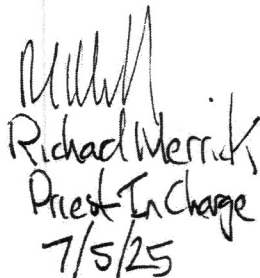 Richard Merrick
Priest In Charge
7/5/25